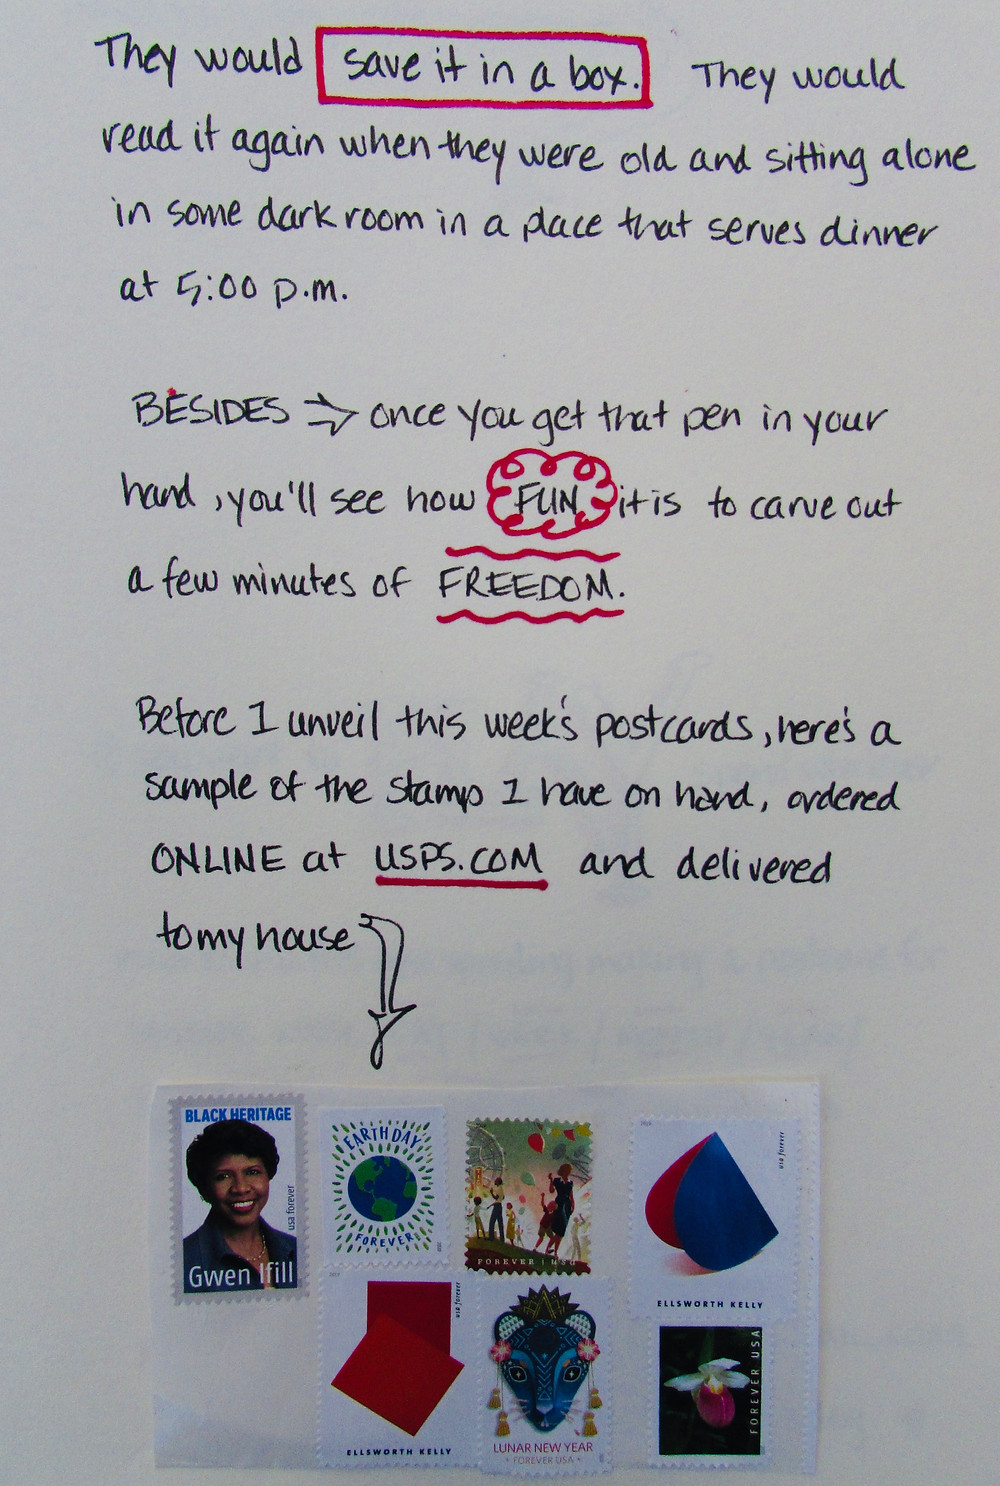 They would save it in a box. They would
read it again when they were old and sitting alone
in some dark room in a place that serves dinner
at 5:00 p.m.
BESIDES ⇒ once you get that pen in your
hand, you'll see how FUN it is to carve out
a few minutes of FREEDOM.
Before I unveil this week's postcards, here's a
sample of the stamp I have on hand, ordered
ONLINE at USPS.COM and delivered
to my house
BLACK HERITAGE
usa forever
Gwen Ifill
EARTH DAY
FOREVER
FOREVER | USA
usa forever
ELLSWORTH KELLY
usa forever
ELLSWORTH KELLY
LUNAR NEW YEAR
• FOREVER USA •
FOREVER USA